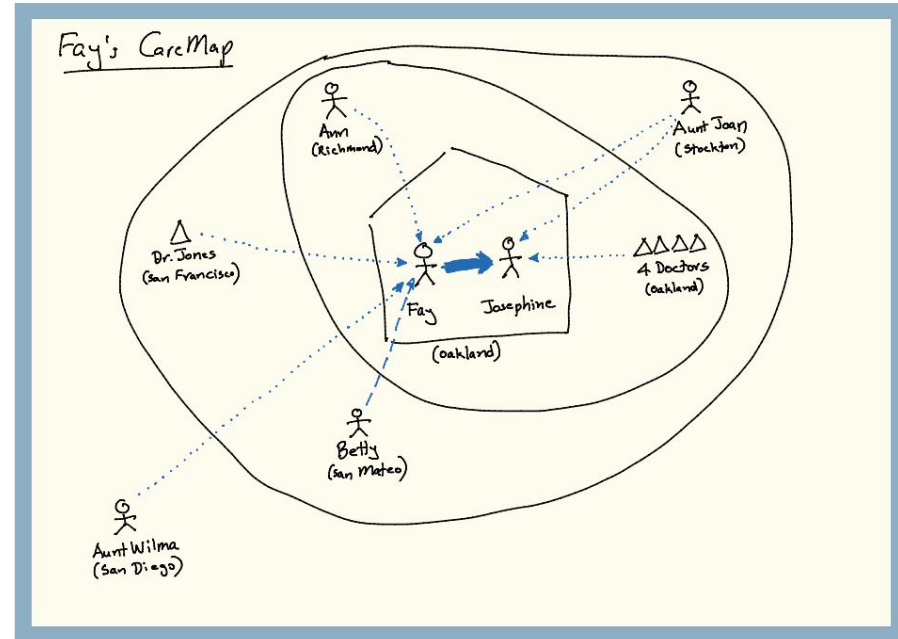 Fay's CareMap
Ann
(Richmond)
Aunt Joan
(Stockton)
Dr. Jones
(San Francisco)
4 Doctors
(Oakland)
Fay
Josephine
(Oakland)
Betty
(San Mateo)
Aunt Wilma
(San Diego)